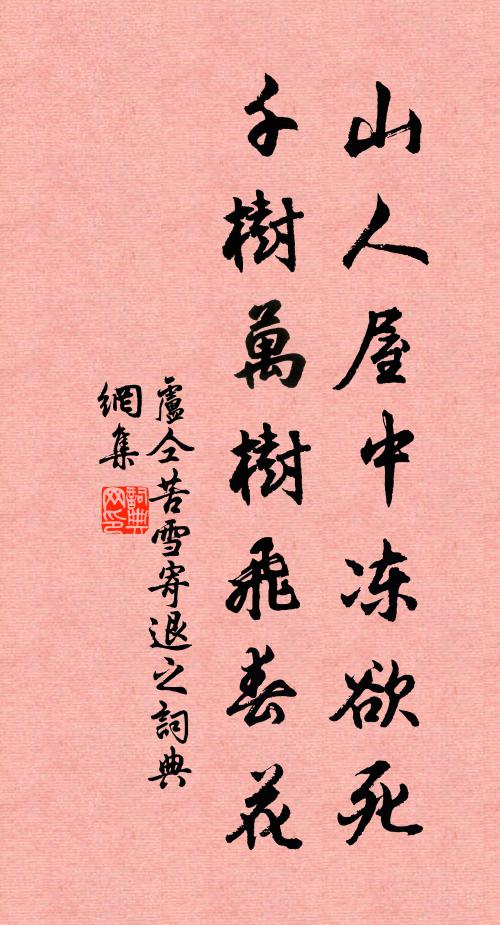 山人屋中冻欲死
千樹萬樹飛春花
盧仝苦雪寄退之詞典
網集
詞典
网印